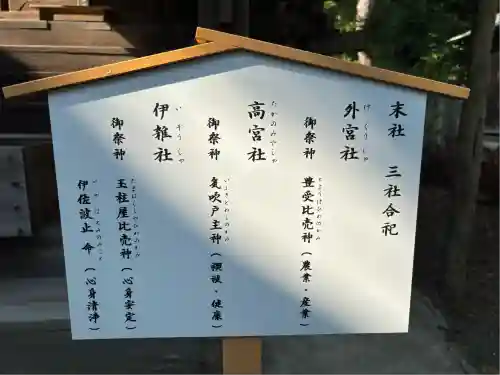 末社 三社合祀
外宮社
げくうしゃ
御祭神
豊受比売神（農業・産業）
とようけひめのかみ
高宮社
たかのみやしゃ
御祭神
気吹戸主神（禊祓・健康）
いぶきどぬしのかみ
伊雜社
いぞうしゃ
御祭神
玉柱屋比売神（心身安定）
たまはしらやひめのかみ
伊佐波止命（心身清浄）
いさはとみのみこと